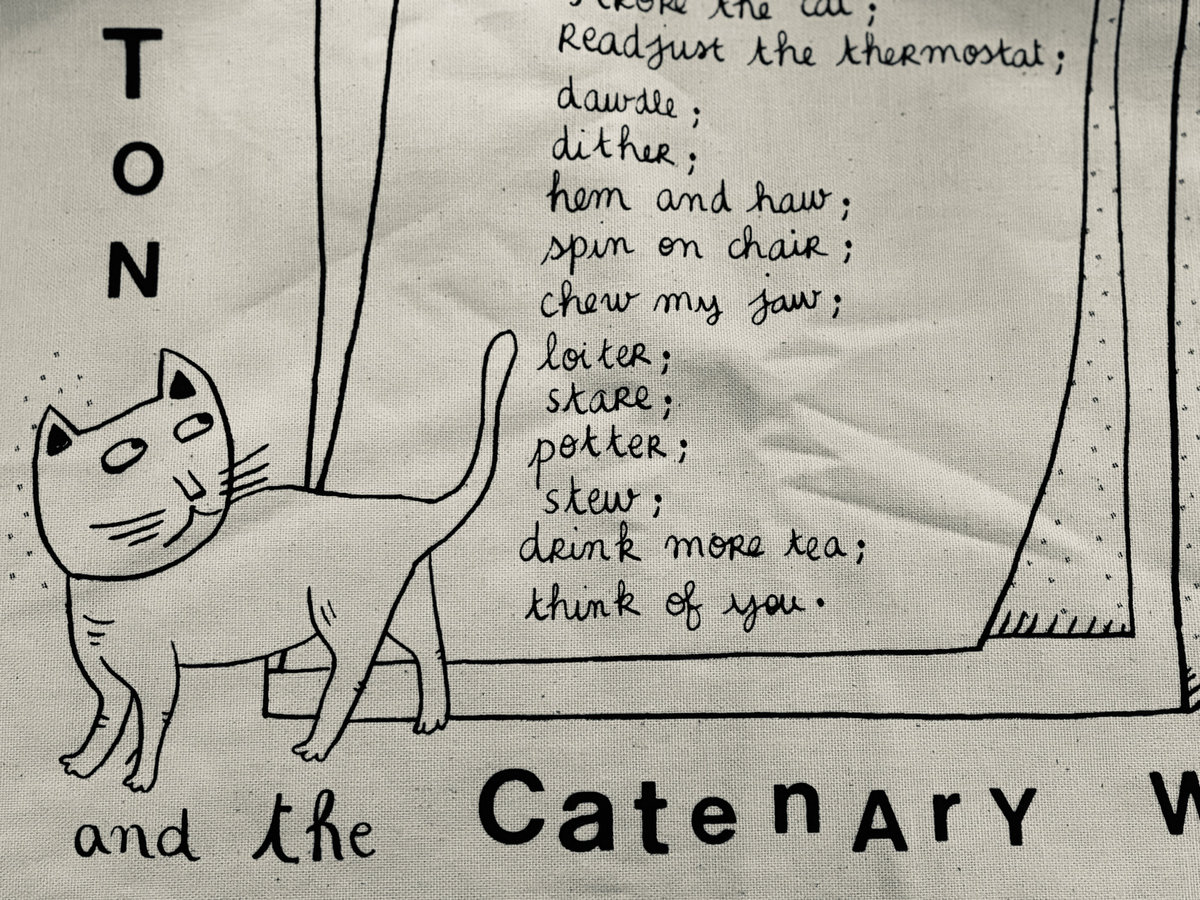 T
O
N
stroke the cat;
Readjust the thermostat;
dawdle;
dither;
hem and haw;
spin on chair;
chew my jaw;
loiter;
stare;
potter;
stew;
drink more tea;
think of you.
and the CatenAry W